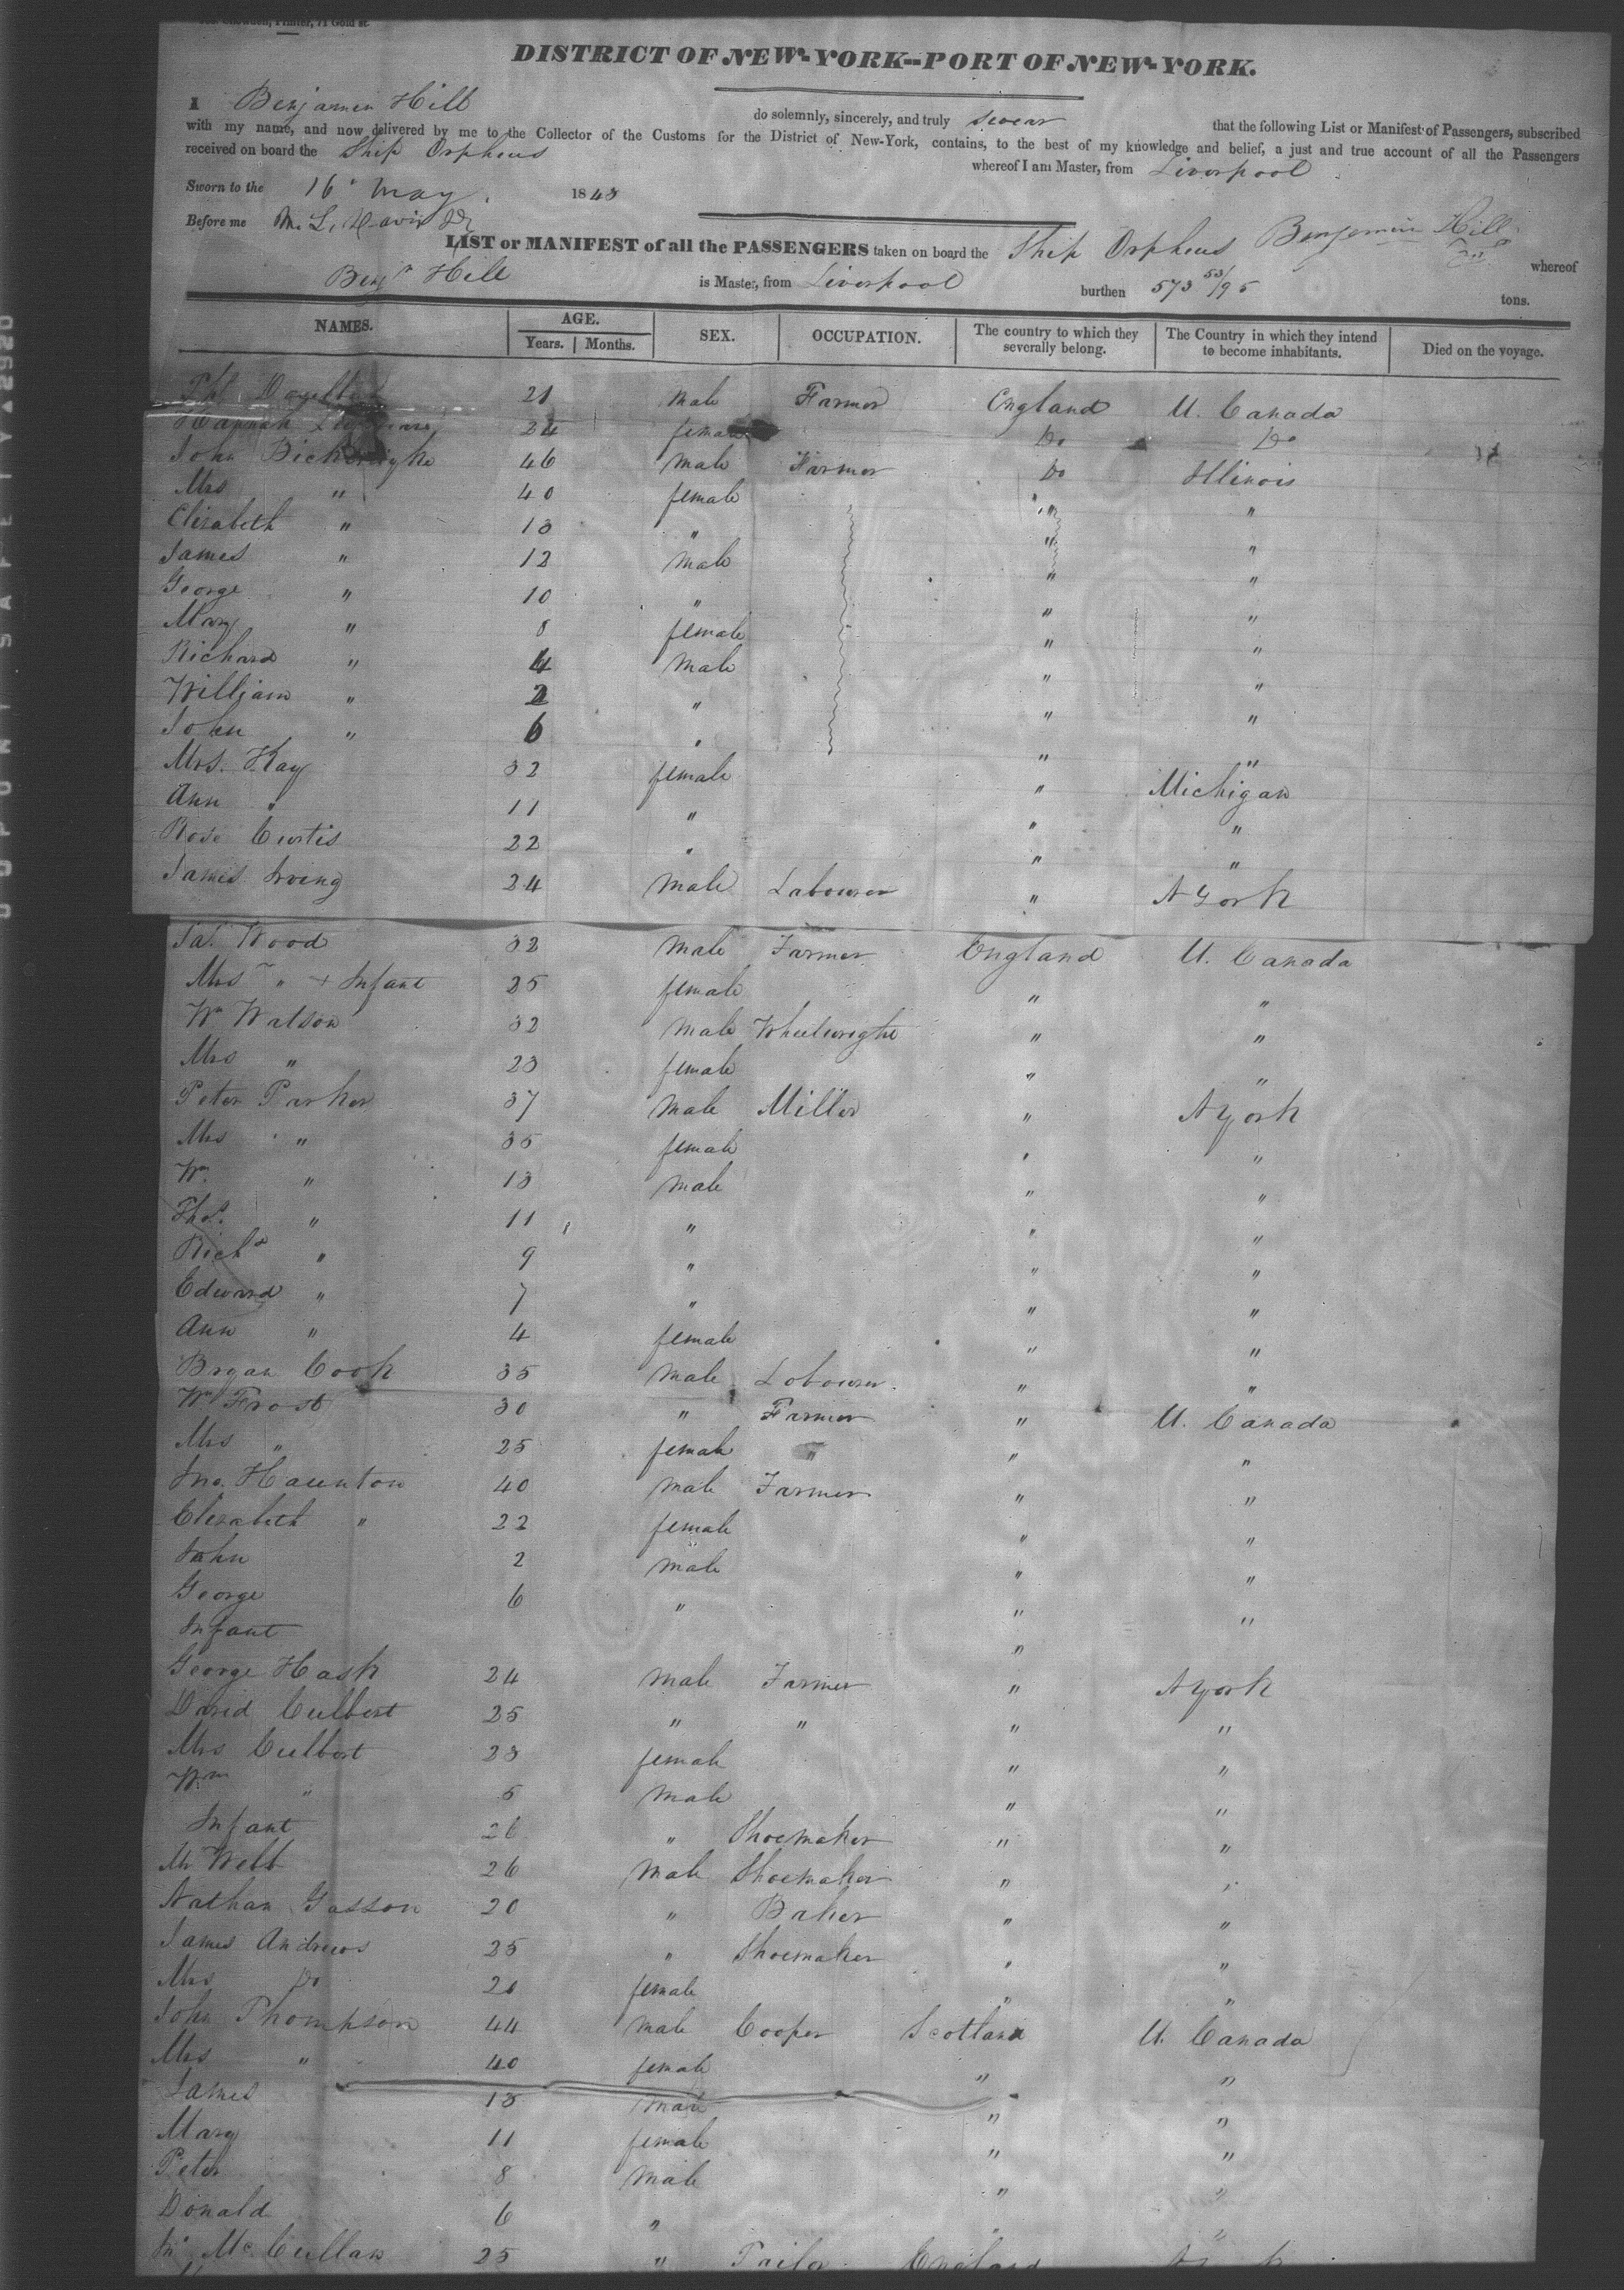 Printer, 71 Gold st.
DISTRICT OF NEW-YORK--PORT OF NEW-YORK.
I Benjamin Hill do solemnly, sincerely, and truly swear that the following List or Manifest of Passengers, subscribed
with my name, and now delivered by me to the Collector of the Customs for the District of New-York, contains, to the best of my knowledge and belief, a just and true account of all the Passengers
received on board the Ship Orpheus whereof I am Master, from Liverpool
Sworn to the 16 May 1843
Before me M. L. Davis Benjamin Hill
LIST or MANIFEST of all the PASSENGERS taken on board the Ship Orpheus whereof
Benjn Hill is Master, from Liverpool burthen 573 53/95 tons.
NAMES. AGE. Years. Months. SEX. OCCUPATION. The country to which they severally belong. The Country in which they intend to become inhabitants. Died on the voyage.
21 male Farmer England U. Canada
Hannah 24 female Do Do
John 46 male Farmer Do Illinois
Mrs " 40 female " "
Elizabeth " 13 " " "
James " 12 male " "
George " 10 " " "
Mary " 8 female " "
Richard " 4 male " "
William " 2 " " "
John " 6 " " "
Mrs. Kay 32 female " Michigan
Ann " 11 " " "
Rose Curtis 22 " " "
James Irving 24 male Labourer " N York
Jas. Wood 32 male Farmer England U. Canada
Mrs " + Infant 25 female " "
Wm Watson 32 male Wheelwright " "
Mrs " 23 female " "
Peter Parker 37 male Miller " N York
Mrs " 35 female " "
Wm. " 13 male " "
Thos. " 11 " " "
Richd " 9 " " "
Edward " 7 " " "
Ann " 4 female " "
Bryan Cook 35 male Labourer " "
Wm Frost 30 " Farmer " U. Canada
Mrs " 25 female " " "
Jno. Haunton 40 male Farmer " "
Elizabeth " 22 female " "
John 2 male " "
George 6 " " "
Infant "
George Hash 24 male Farmer " N York
David Culbert 25 " " " "
Mrs Culbert 23 female " "
Wm " 5 male " "
Infant 26 " Shoemaker " "
Mr Webb 26 male Shoemaker " "
Nathan Gasson 20 " Baker " "
James Andrews 25 " Shoemaker " "
Mrs Do 20 female " "
John Thompson 44 male Cooper Scotland U. Canada
Mrs " 40 female " "
James 13 male " "
Mary 11 female " "
Peter 8 male " "
Donald 6 " " "
Mc Cullan 25 " Tailor England